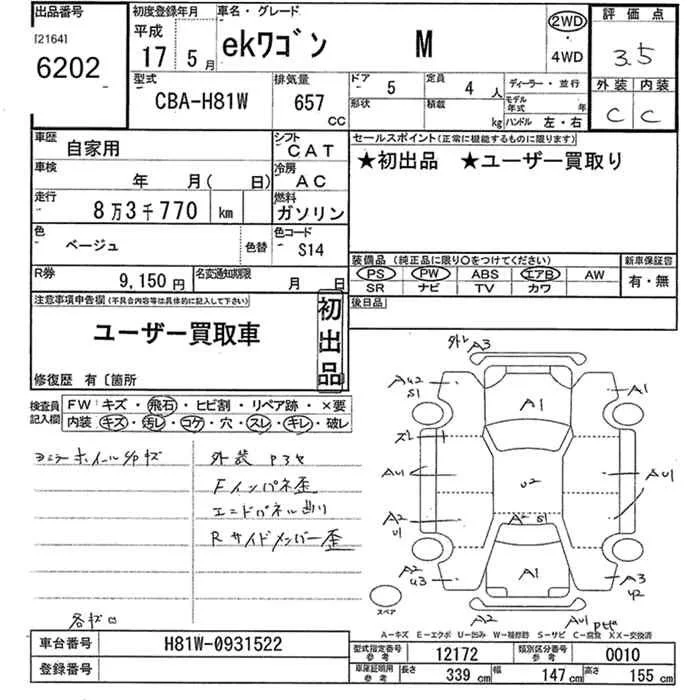 出品番号
[2164]
6202
初度登録年月
平成
17 5月
車名・グレード
ekワゴン M
2WD
4WD
評価点
3.5
外装 内装
C C
型式
CBA-H81W
排気量
657 cc
ドア 5
定員 4 人
ディーラー・並行
形状
積載 kg
モデル年式 年
ハンドル 左・右
車歴
自家用
シフト
CAT
セールスポイント(正常に機能するものに限ります)
★初出品 ★ユーザー買取り
車検
年 月( 日)
冷房
AC
走行
8万3千770 km
燃料
ガソリン
色
ベージュ
色替
色コード
S14
装備品(純正品に限り○をつけてください)
新車保証書
PS PW ABS エアB AW
SR ナビ TV カワ
有・無
R券
9,150円
名変通知期限
月 日
後日品
注意事項申告欄(不具合内容等は具体的に記入して下さい)
ユーザー買取車
初出品
修復歴 有〔箇所
検査員記入欄
FW:キズ・飛石・ヒビ割・リペア跡・×要
内装 キズ・汚レ・コゲ・穴・スレ・キレ・破レ
外装 P3セ
Fインパネ歪
エンドパネル凹リ
Rサイドメンバー歪
外レ A3
AU2
S1
A1
A1
ズレ
AU1
U2
AU1
A2
U1
A2 S1
A2
U3
A1
A3
U2
A2
AU1
スペア
A−キズ E−エクボ U−凹み W−補修跡 S−サビ C−腐食 XX−交換済
車台番号
H81W-0931522
登録番号
型式指定番号
参考
12172
類別区分番号
参考
0010
車庫証明用
参考
長さ 339 cm
幅 147 cm
高さ 155 cm